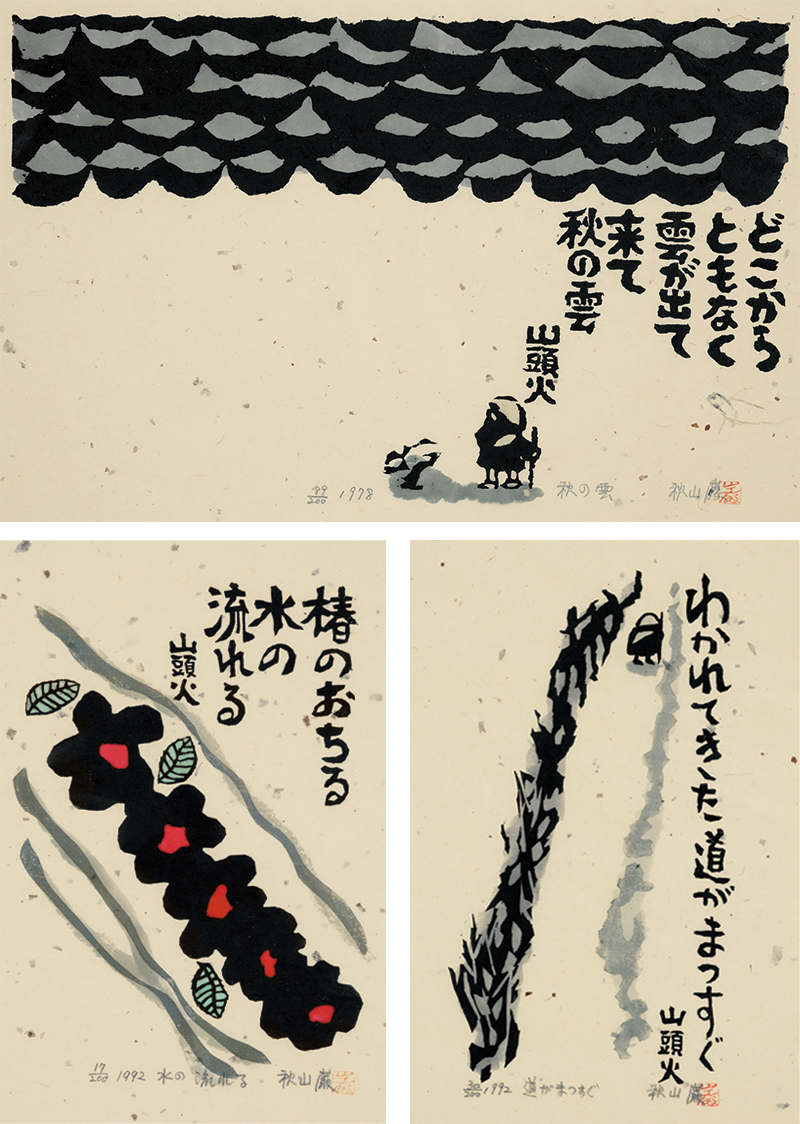 どこから
ともなく
雲が出て
来て
秋の雲
山頭火
89/200 1978 秋の雲 秋山巌
椿のおちる
水の
流れる
山頭火
17/200 1992 水の流れる 秋山巌
わかれてきた道がまつすぐ
山頭火
30/200 1992 道がまつすぐ 秋山巌